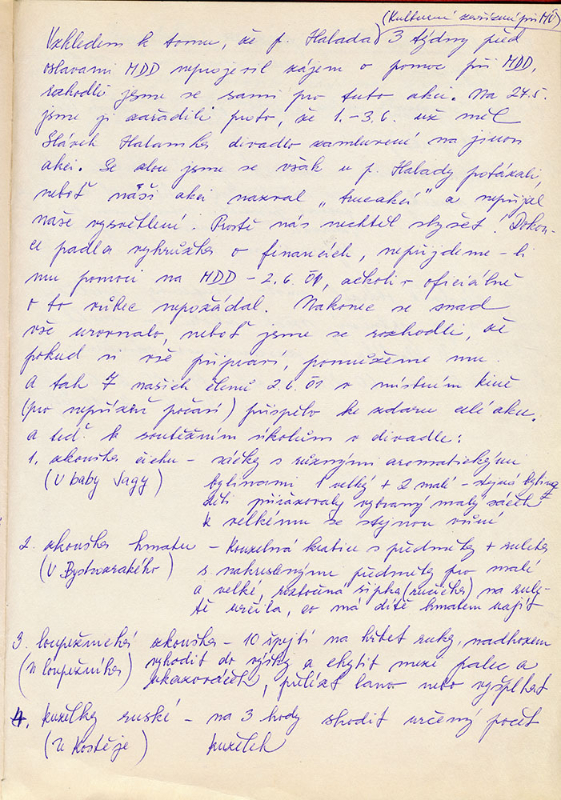 (Kulturní zařízení při MÚ)
Vzhledem k tomu, že p. Halada 3 týdny před
oslavami MDD neprojevil zájem o pomoc při MDD,
rozhodli jsme se sami pro tuto akci. Na 27.5.
jsme ji zařadili proto, že 1.-3.6. už měl
Slávek Halamka divadlo zamluvené na jinou
akci. Se zlou jsme se však u p. Halady potázali,
neboť naši akci nazval „ " a nepřijal
naše vysvětlení. Prostě nás nechtěl slyšet. Dokon-
ce padla vyhrůžka o financích, nepřijdeme-li
mu pomoci na MDD - 2.6. 01, ačkoli o oficiálně
o to vůbec nepožádal. Nakonec se snad
vše urovnalo, neboť jsme se rozhodli, že
pokud si vše připraví, pomůžeme mu
a tak 7 našich členů 2.6. 01 v místním kině
(pro nepřízeň počasí) přispělo ke zdaru celé akce.
a teď k soutěžním úkolům v divadle:
1. zkouška čichu - sáčky s různými aromatickými
(U baby Jagy) bylinami 1 velký + 2 malé - stejná bylina
děti přiřazovaly vybraný malý sáček
k velkému se stejnou vůní
2. zkouška hmatu - kouzelná krabice s předměty + ruleta
(U Bystrozrakého) s nakreslenými předměty pro malé
a velké, roztočná šipka (ručička) na rule-
tě určila, co má dítě hmatem najít
3. loupežnická zkouška - 10 špejlí na hřbet ruky, nadhozem
(u loupežníka) vyhodit do výšky a chytit mezi palec a
ukazováček, přelézt lano nebo vyšplhat
4. kuželky ruské - na 3 hody shodit určený počet
(u Kostěje) kuželek